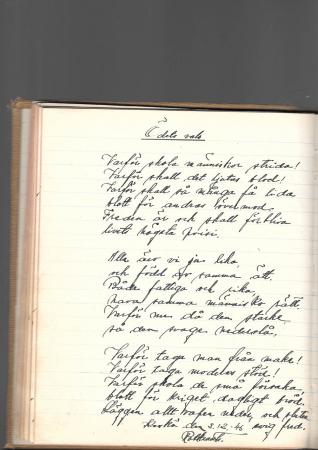 Ödets vals
Varför skola människor strida!
Varför skall det gjutas blod!
Varför skall så många få lida
blott för andras övermod.
Freden är och skall förbliva
livets högsta
Alla äro vi ju lika
och född av samma ätt.
Både fattiga och rika,
hava samma människo rätt.
Varför nu då den starke
så den svage nederslå.
Varför taga man från make!
Varför taga moderns stöd!
Varför skola de små försaka
blott för kriget dagligt bröd.
Läggen allt vapen neder, och sluten
den 3.12.41 evig fred.